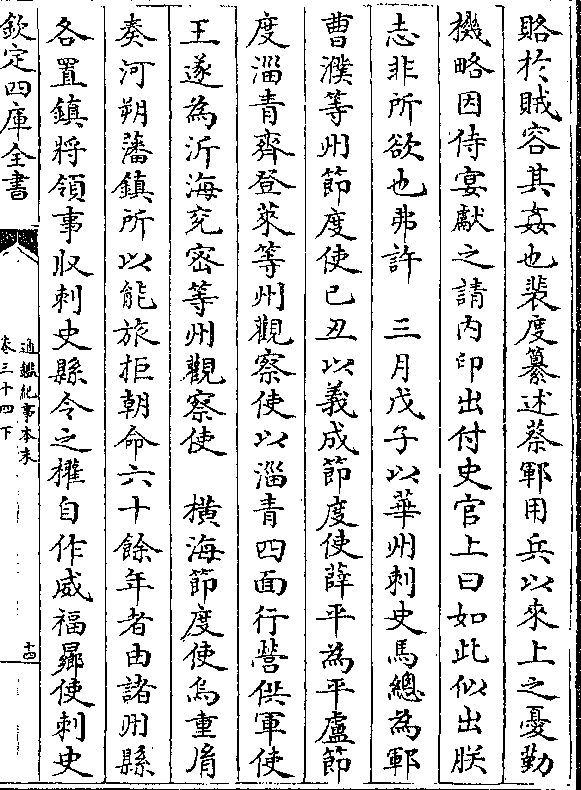 賂於賊容其姦也裴度纂述蔡鄆用兵以來上之憂勤
機略因侍宴獻之請内印出付史官上曰如此似出朕
志非所欲也弗許　三月戊子以華州刺史馬總為鄆
曹濮等州節度使己丑以義成節度使薛平為平盧節
度淄青齊登萊等州觀察使以淄青四面行營供軍使
王遂為沂海兖密等州觀察使　横海節度使烏重𦙍
奏河朔藩鎮所以能旅拒朝命六十餘年者由諸州縣
各置鎮將領事収刺史縣令之權自作威福曏使刺史
欽定四庫全書
通鑑紀事本末
卷三十四下
十四